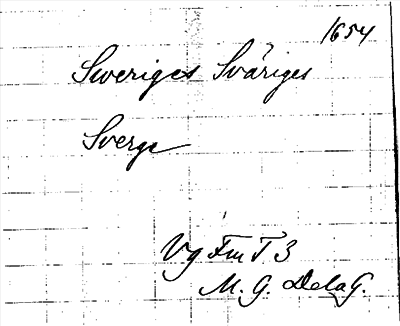 1654
Sweriges Sväriges
Sverge
Vg Fm T 3
M. G. DelaG.